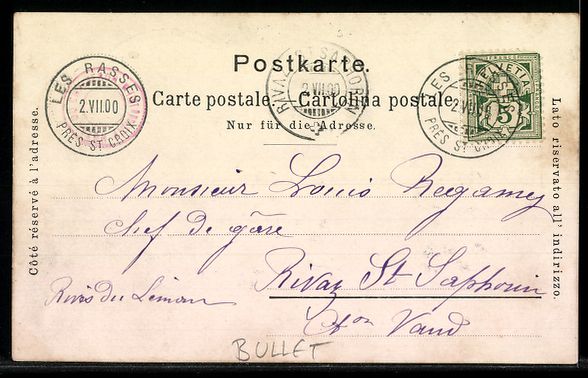 Postkarte.
Carte postale. Cartolina postale.
Nur für die Adresse.
Côté réservé à l'adresse.
Lato riservato all' indirizzo.
LES RASSES
2.VII.00
PRÈS STE CROIX
RIVAZ-ST SAPHORIN
2.VII.00
LES RASSES
2.VII.00
PRÈS STE CROIX
FRANCO
HELVETIA
5
Monsieur Louis Regamey
Chef de gâre
Rivaz St Saphorin
Rives du Léman
Cton Vaud
BULLET